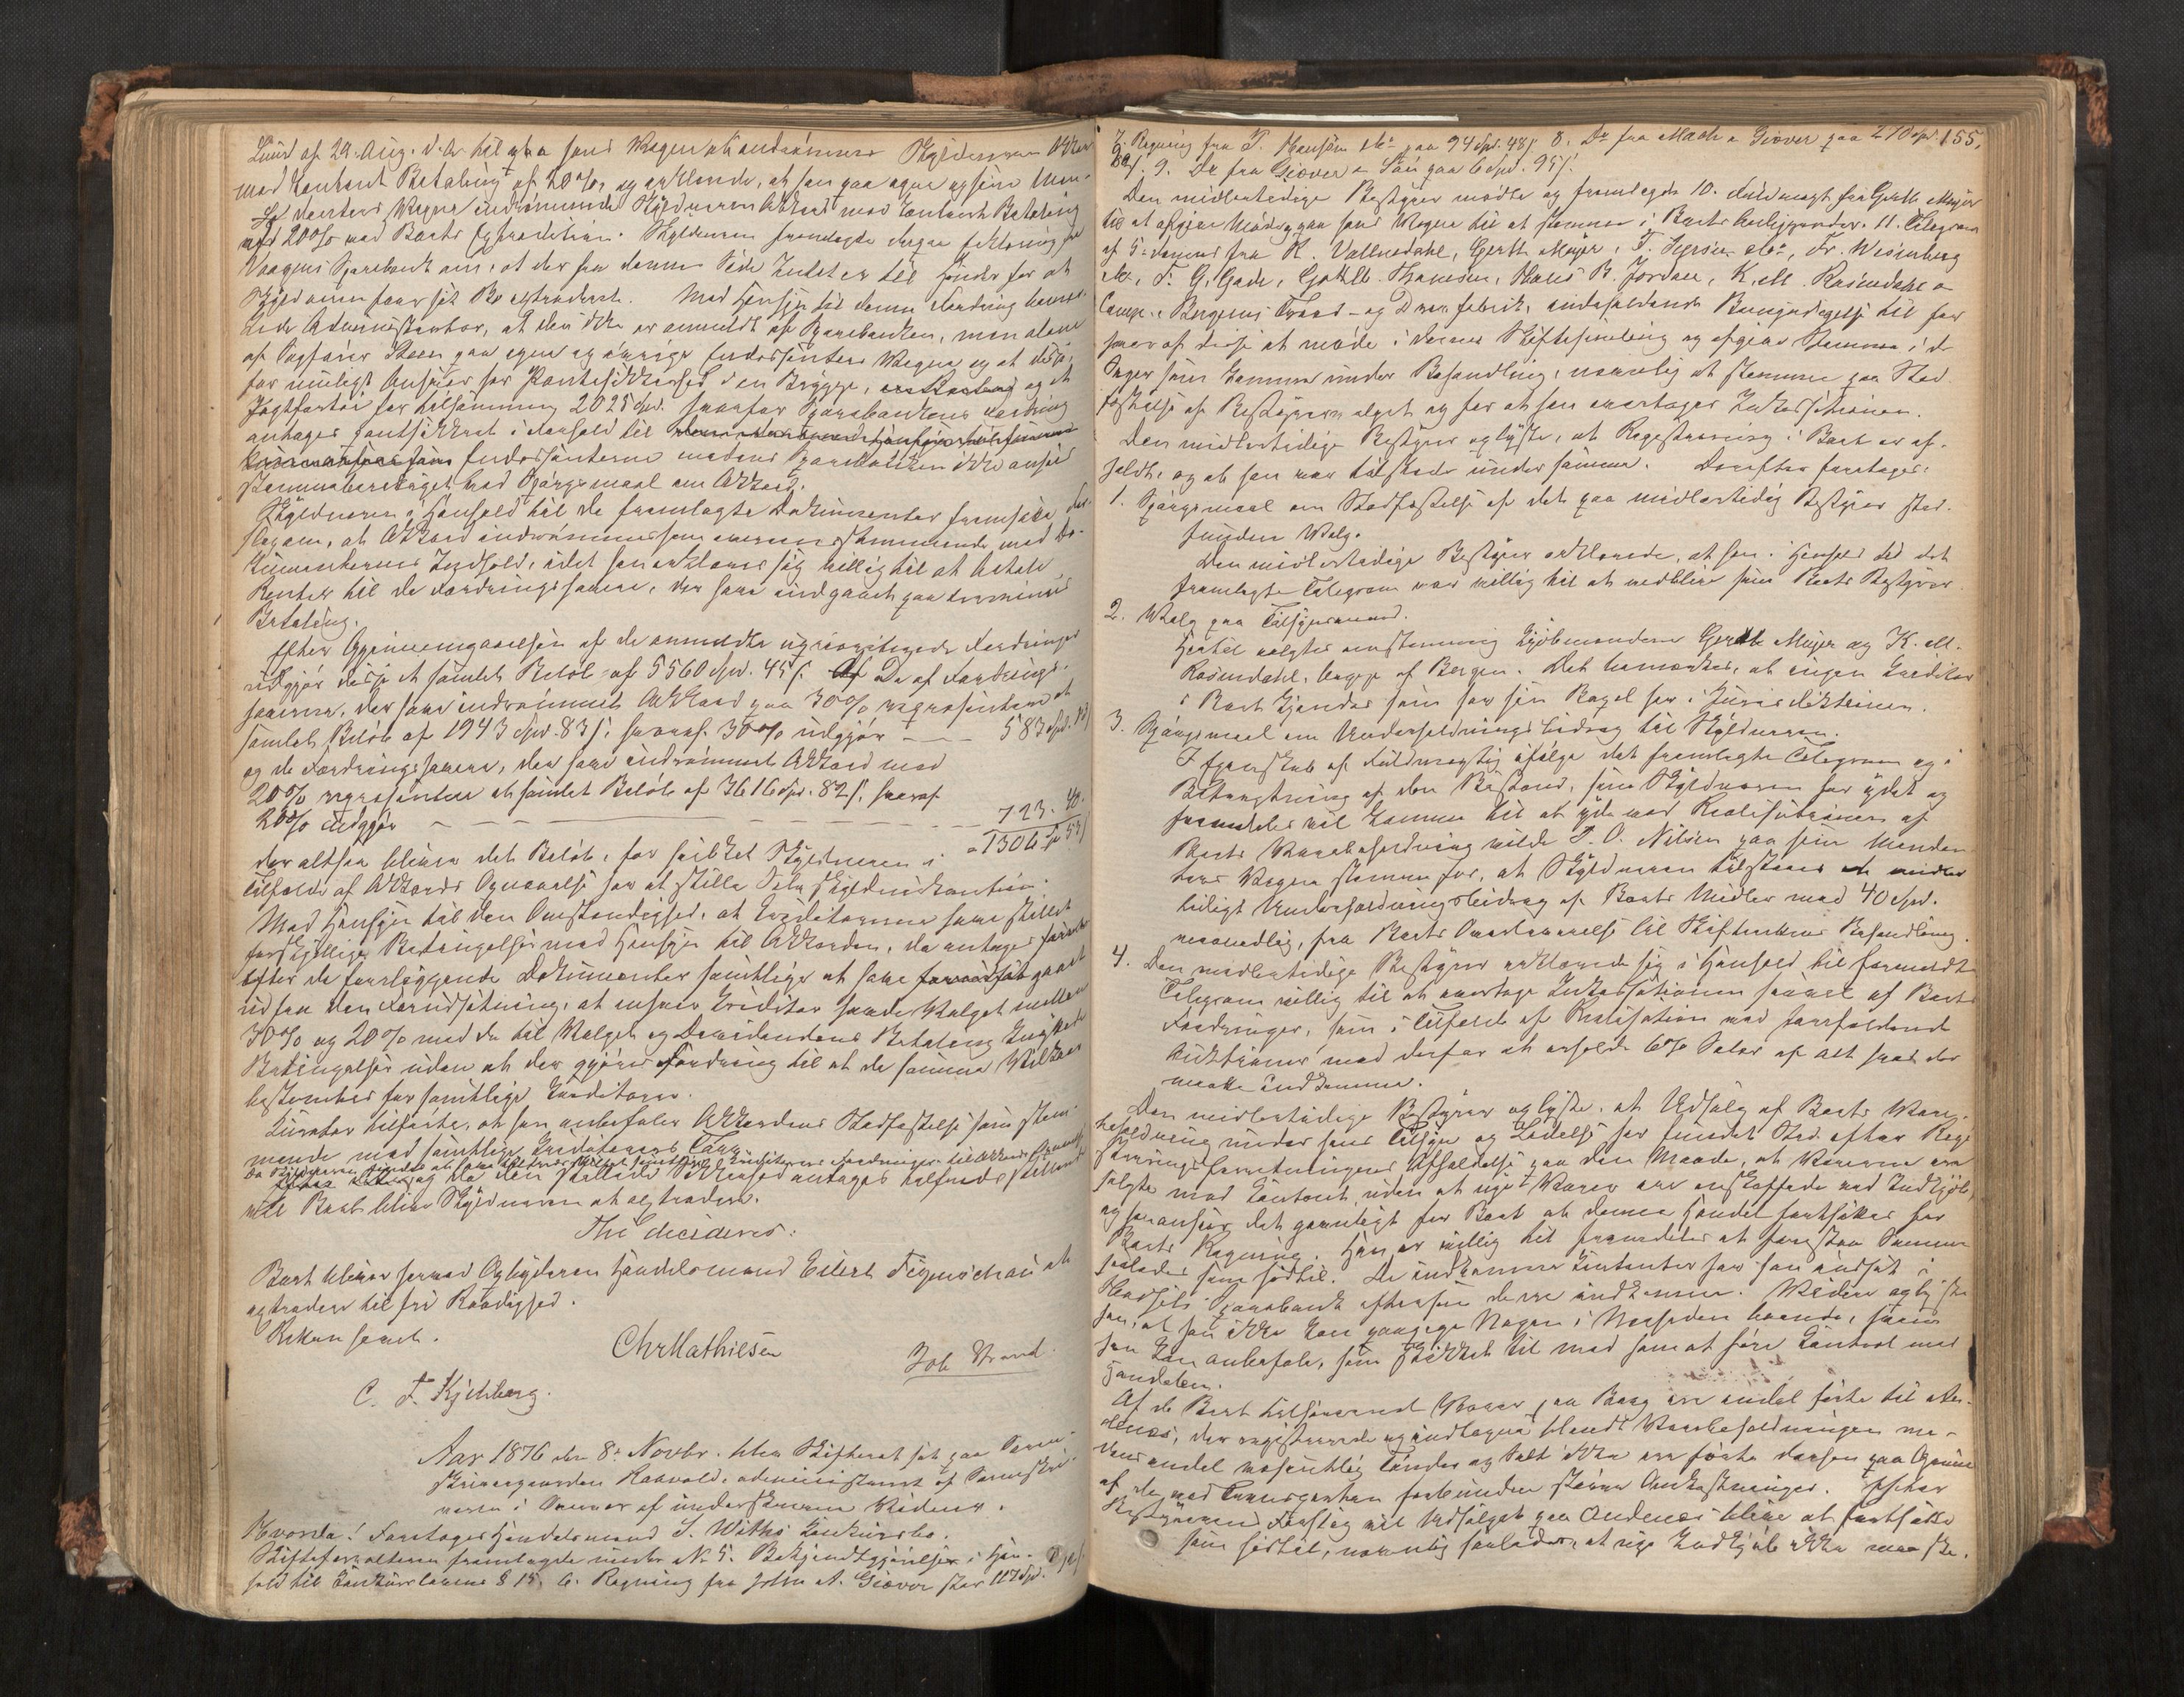 Lund af 29. Aug. d. A. til paa hans Vegne at indrømme Skyldneren Akkord
mod kontant Betaling af 20% og erklærede, at han paa egne og sine Man-
danters Vegne indrømmede Skyldneren Akkord mod kontant Betaling
af 20% ved Boets Extradition. Skyldneren fremlagte derpaa Erklæring fra
Vaagens Sparebank om, at der fra dennes Side Intet er til Hinder for at
Skyldneren faar sit Bo extraderet. Med Hensyn til denne Fordring bemær-
kede Administrator, at den ikke er anmeldt af Sparebanken, men alene
af Sagfører Steen paa egne og øvrige Endossenters Vegne og at disse
har nemligt Ansvar for Pantesikkerhed i en Brygge, og et
Jagtfartøi for tilsammen 2025 Spd. hvorfor Sparebankens Fordring
antages pantsikkret i Forhold til
Endossenterne medens Sparebanken ikke ansees
stemmeberettiget ved Spørgsmaal om Akkord.
Skyldneren i Henhold til de fremlagte Dokumenter fremsatte For-
slag om, at Akkord indrømmes ham overensstemmende med Do-
kumenternes Indhold, idet han erklærer sig villig til at betale
Renter til de Fordringshavere, der have indgaaet paa terminvis
Betaling.
Efter Gjennemgaaelsen af de anmeldte upriviligerede Fordringer
udgjør disse et samlet Beløb af 5560 Spd. 45 s. De af Fordrings-
haverne, der have indrømmet Akkord paa 30% repræsentere et
samlet Beløb af 1943 Spd. 83 s. hvoraf 30% udgjør — 583 Spd.
og de Fordringshavere, der have indrømmet Akkord med
20% repræsentere et samlet Beløb af 3616 Spd. 82 s. hvoraf
20% udgjør — — — 723. 40.
1306
der altsaa bliver det Beløb, for hvilket Skyldneren i
Tilfælde af Akkords Opnaaelse har at stille Selvskyldnerkaution.
Med Hensyn til den Omstændighed, at Kreditorerne have stillet
forskjellige Betingelser med Hensyn til Akkorden, da antages
efter de foreliggende Dokumenter samtlige at have gaaet
ud fra den Forudsætning, at enhver Kreditor havde Valget mellem
30% og 20% med de til Valget og Dividendens Betaling knyttede
Betingelser uden at der gjøres Fordring til at de samme Vilkaar
bestemtes for samtlige Kreditorer.
Kurator tilførte, at han anbefaler Akkordens Stadfæstelse som stem-
mende med samtlige Kreditorers Tarv
og da den stillede Sikkerhed antages tilfredsstillende
vil Boet blive Skyldneren at extradere.
Thi decideres:
Boet bliver herved Opbyderen Handelsmand Eilert Figenschau at
extradere til fri Raadighed.
Retten hævet.
Chr Mathiesen
Joh Strand.
C. F. Kjelberg.
Aar 1876 den 8de Novbr. blev Skifteret sat paa Soren-
skrivergaarden Raavold, administreret af Sorenskri-
veren i Overvær af underskrevne Vidner.
Hvorda! Foretoges Handelsmand S. Withs Konkursbo.
Skifteforvalteren fremlagde under No 5. Bekjendtgjørelse i Hen-
hold til Konkurslovens § 15. 6. Regning fra John A. Giæver stor 117 Spd.
155.
7. Regning fra T. Hansen paa 94 Spd. 48 s. 8. Do fra Mack & Giæver paa 270 Spd.
9. Do fra Giæver & Søn paa 6 Spd. 95 s.
Den midlertidige Bestyrer mødte og fremlagde 10. Fuldmagt fra Gerdt Meyer
til at afgive Møde paa hans Vegne til at stemme i Boets Anliggender. 11. Telegram
af 5te dennes fra R. Vallendahl, Gerdt Meyer, Fr. Wesenberg
F. G. Gade, Gottlb. Thomsen, Hans B. Jordan, K. M. Rosendahl &
Comp. Bergens Traad- og fabrik, indeholdende Bemyndigelse til for
hver af disse at møde i dennes Skiftesamling og afgive Stemme i de
Sager som kommer under Behandling, navnlig at stemme paa Stad-
fæstelse af Bestyrervalget og for at han overtager Inkassationen.
Den midlertidige Bestyrer oplyste, at Registrering i Boet er af-
holdt, og at han var tilstede under samme. Derefter foretoges:
1. Spørgsmaal om Stadfæstelse af det paa midlertidig Bestyrer sted-
fundne Valg.
Den midlertidige Bestyrer erklærede, at han i Henhold til det
fremlagte Telegram var villig til at vedblive som Boets Bestyrer.
2. Valg paa Tilsynsmænd.
Hertil valgtes enstemmig Kjøbmændene Gerdt Meyer og K. M.
Rosendahl, begge af Bergen. Det bemærkes, at ingen Kreditor
i Boet kjendes som har sin Bopæl her i Jurisdiktionen.
3. Spørgsmaal om Underholdningsbidrag til Skyldneren.
I Egenskab af Fuldmægtig ifølge det fremlagte Telegram og i
Betragtning af den Bistand, som Skyldneren har ydet og
fremdeles vil komme til at yde ved Realisationen af
Boets Varebeholdning vilde P. O. Nilsen paa sine Mandan-
ters Vegne stemme for, at Skyldneren tilstaaes et midler-
tidigt Underholdningsbidrag af Boets Midler med 40 Spd.
maanedlig, fra Boets Overleverelse til Skifterettens Behandling.
4. Den midlertidige Bestyrer erklærede sig i Henhold til formeldte
Telegram villig til at overtage Inkassationen saavel af Boets
Fordringer, som i Tilfælde af Realisation ved forefaldende
Auktioner mod derfor at erholde 6% Salær af alt hvad der
maatte indkomme.
Den midlertidige Bestyrer oplyste, at Udsalg af Boets Vare-
beholdning under hans Tilsyn og Ledelse har fundet Sted efter Regi-
streringsforretningens Afholdelse paa den Maade, at Varerne ere
solgte mod Kontant, uden at nye Varer ere anskaffede ved Indkjøb,
og han anser det gavnligt for Boet at denne Handel fortsættes for
Boets Regning. Han er villig til fremdeles at forestaa Samme
saaledes som hidtil. De indkomne Kontanter har han indsat i
Hadsels Sparebank eftersom de ere indkomne. Videre oplyste
han, at han ikke kan paapege Nogen i Nærheden boende, hvem
han kan anbefale, som skikket til med ham at føre Kontrol med
Handelen.
Af de Boet tilhørende Varer paa Baag ere endel førte til An-
denæs, der registrerede og indtagne blandt Varebeholdningen me-
dens endel væsentlig Tønder og Salt ikke ere førte dersen paa Grund
af de med Transporten forbundne større Omkostninger. Efter
Bestyrerens Forslag vil Udsalget paa Andenæs blive at fortsætte
som hidtil, navnlig saaledes, at nye Indkjøb ikke maa ske.